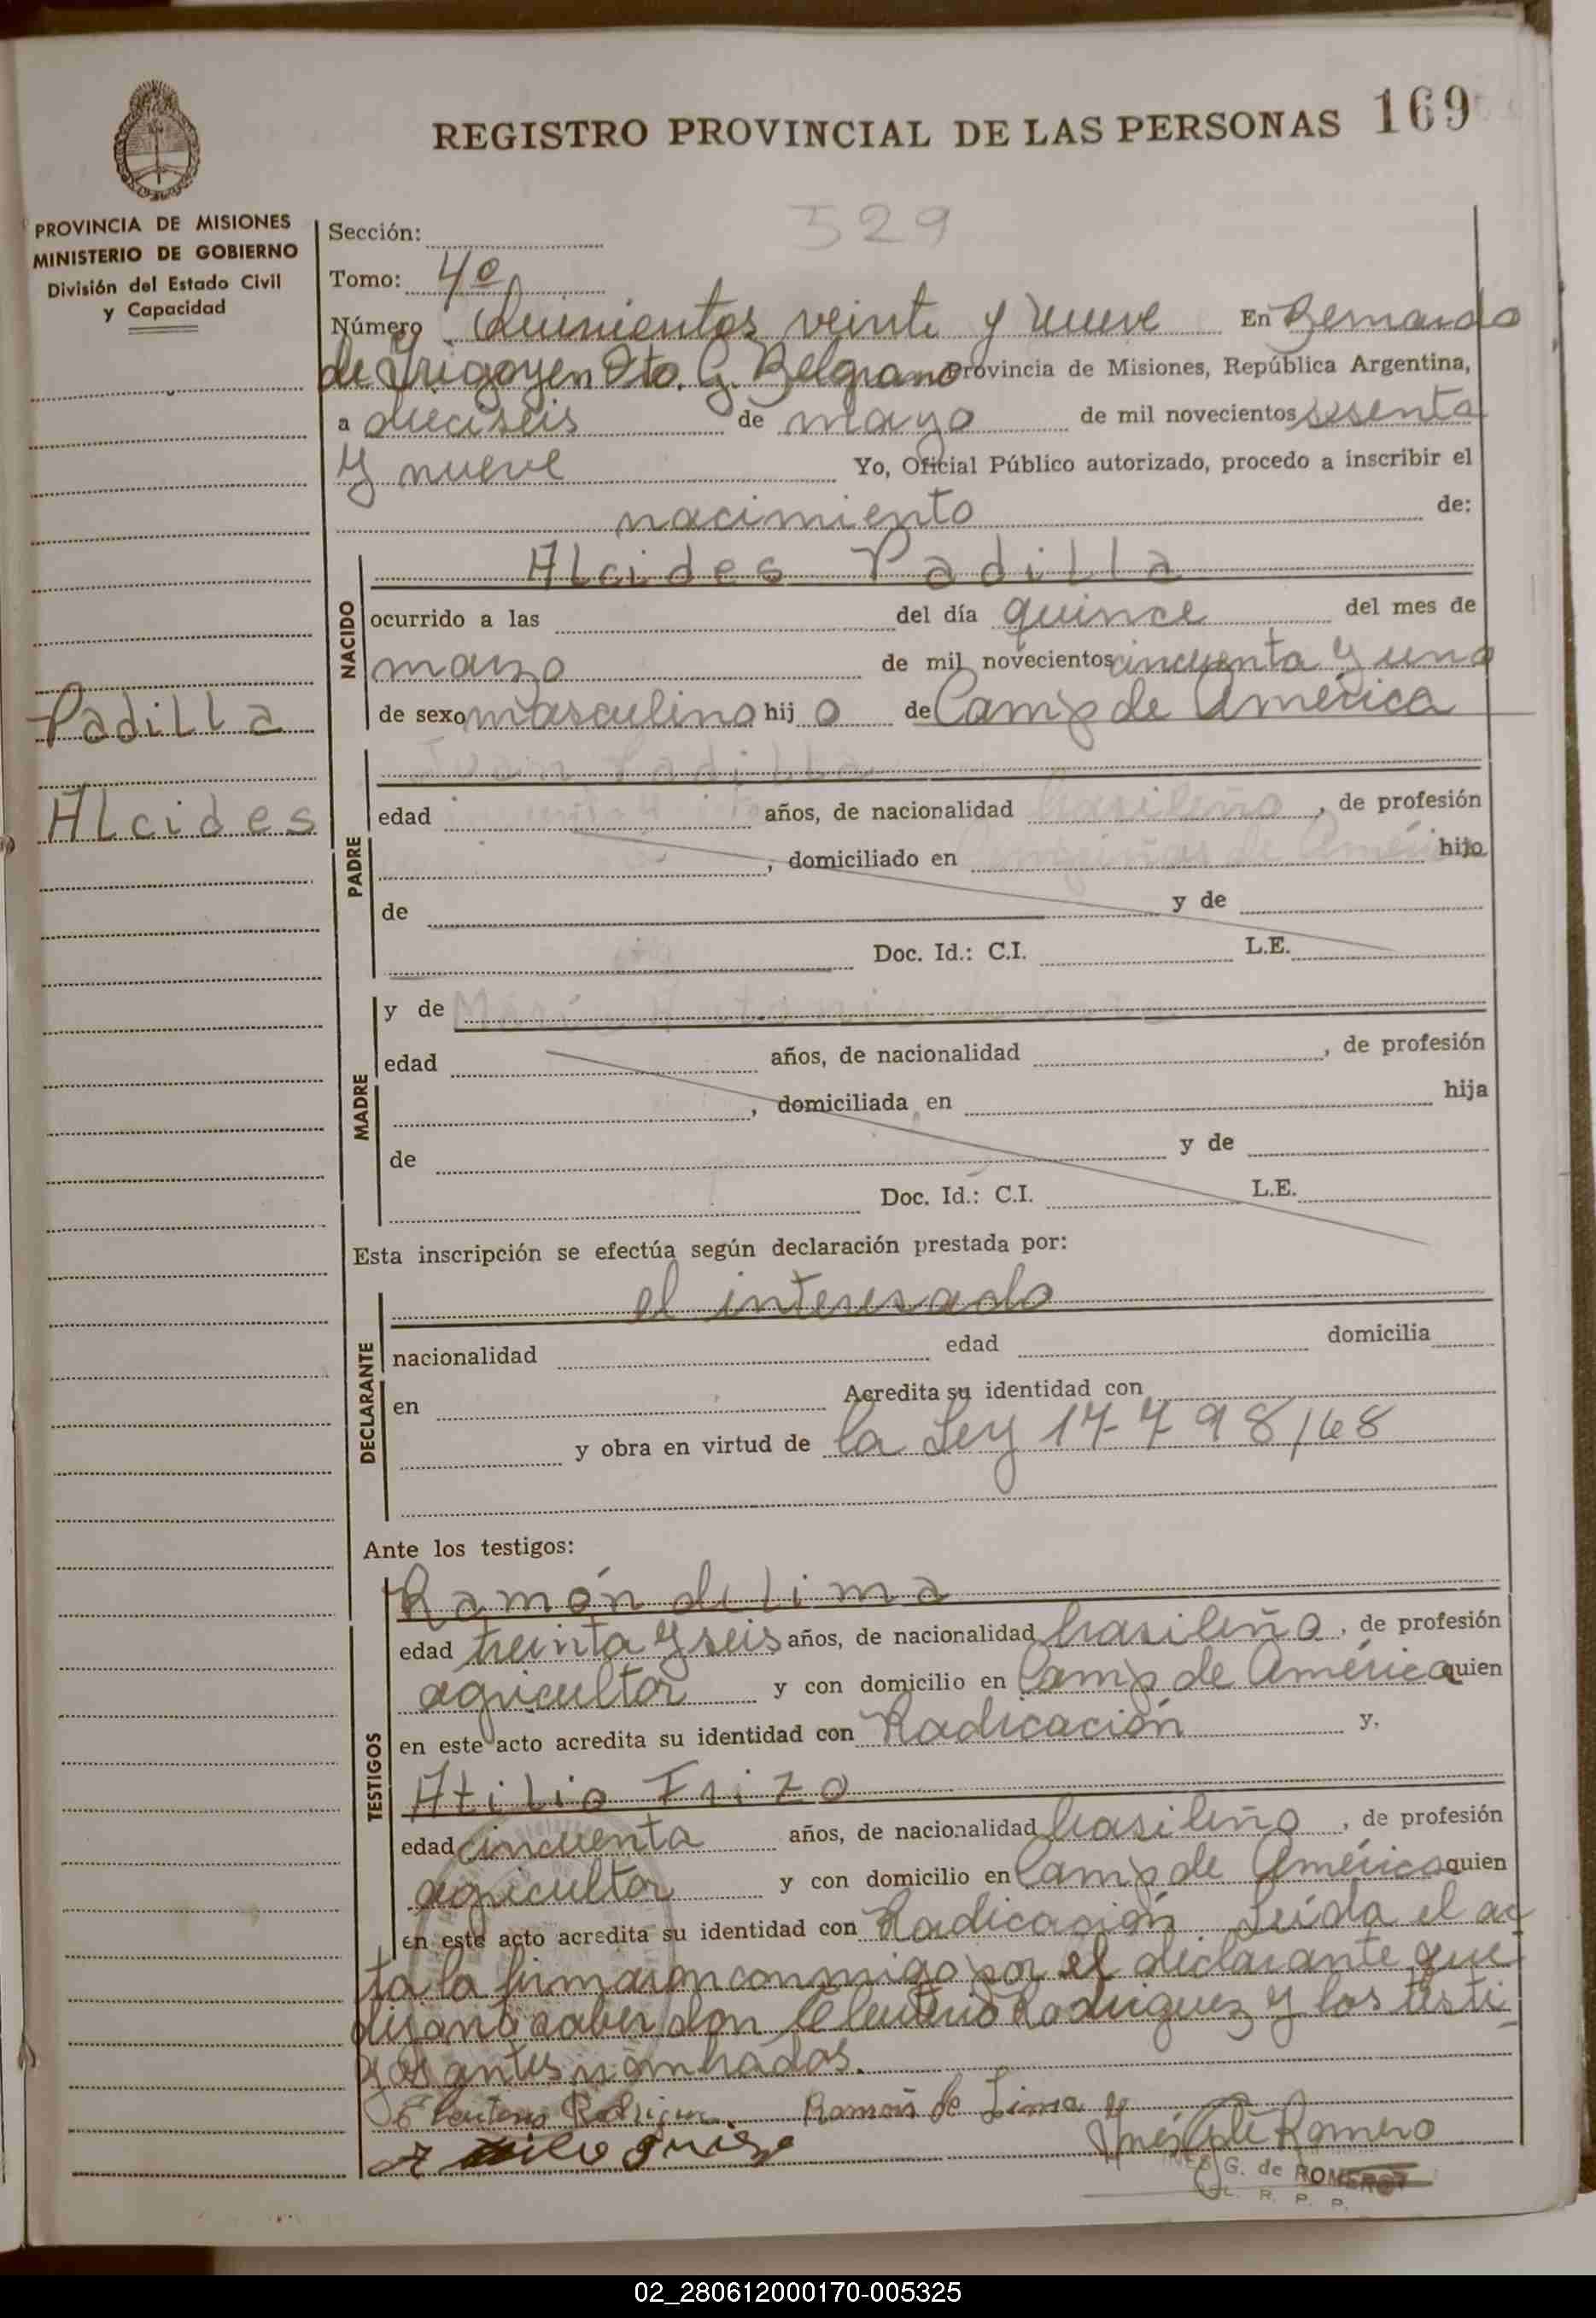 REGISTRO PROVINCIAL DE LAS PERSONAS 169
PROVINCIA DE MISIONES
MINISTERIO DE GOBIERNO
División del Estado Civil
y Capacidad
529
Sección:
Tomo: 4º
Número Quinientos veinte y nueve En Bernardo
de Yrigoyen Dto. G. Belgrano Provincia de Misiones, República Argentina,
a dieciseis de mayo de mil novecientos sesenta
y nueve Yo, Oficial Público autorizado, procedo a inscribir el
nacimiento de:
Alcides Padilla
NACIDO
ocurrido a las del día quince del mes de
marzo de mil novecientos cincuenta y uno
de sexo masculino hij o de Camp de América
Padilla
Alcides
PADRE
Juan Padilla
edad años, de nacionalidad brasileño, de profesión
, domiciliado en hijo
de y de
Doc. Id.: C.I. L.E.
MADRE
y de María
edad años, de nacionalidad , de profesión
, domiciliada en hija
de y de
Doc. Id.: C.I. L.E.
Esta inscripción se efectúa según declaración prestada por:
el interesado
DECLARANTE
nacionalidad edad domicilia
en Acredita su identidad con
y obra en virtud de la Ley 17-798/68
Ante los testigos:
TESTIGOS
Ramón de Lima
edad treinta y seis años, de nacionalidad brasileño, de profesión
agricultor y con domicilio en Camp de América quien
en este acto acredita su identidad con Radicación y,
Atilio Frizo
edad cincuenta años, de nacionalidad brasileño, de profesión
agricultor y con domicilio en Camp de América quien
en este acto acredita su identidad con Radicación Leída el ac
ta la firmaron conmigo por el declarante que
dijo no saber don Eleuterio Rodriguez y los testi
gos antes nombrados.
Eleuterio Rodriguez Ramón de Lima
Inés G. de Romero
INES G. de ROMERO
R. P. P.
02_280612000170-005325